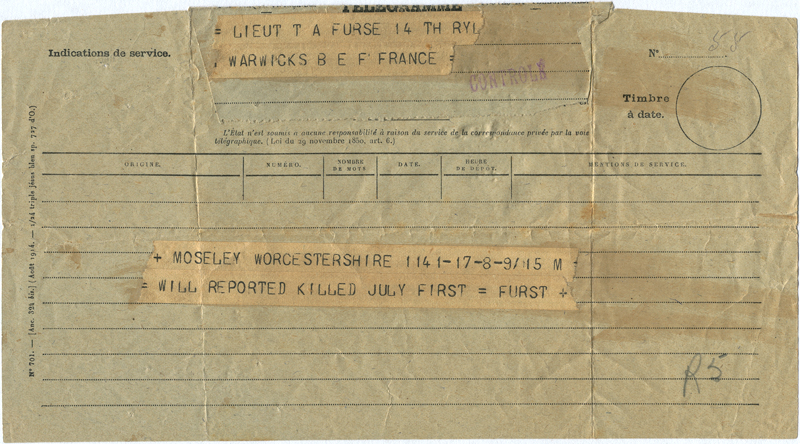 TÉLÉGRAMME
= LIEUT T A FURSE 14 TH RYL
WARWICKS B E F FRANCE =
Indications de service.
N° 55
CONTROLE
Timbre
à date.
L'État n'est soumis à aucune responsabilité à raison du service de la correspondance privée par la voie
télégraphique. (Loi du 29 novembre 1850, art. 6.)
ORIGINE. NUMÉRO. NOMBRE DE MOTS. DATE. HEURE DE DÉPÔT. MENTIONS DE SERVICE.
+ MOSELEY WORCESTERSHIRE 1141-17-8-9/15 M -
= WILL REPORTED KILLED JULY FIRST = FURST +
R5
N° 701. — [Anc. 324 bis.] (Août 1914. — 1/24 triple jésus bleu sp. 727 d'O.)